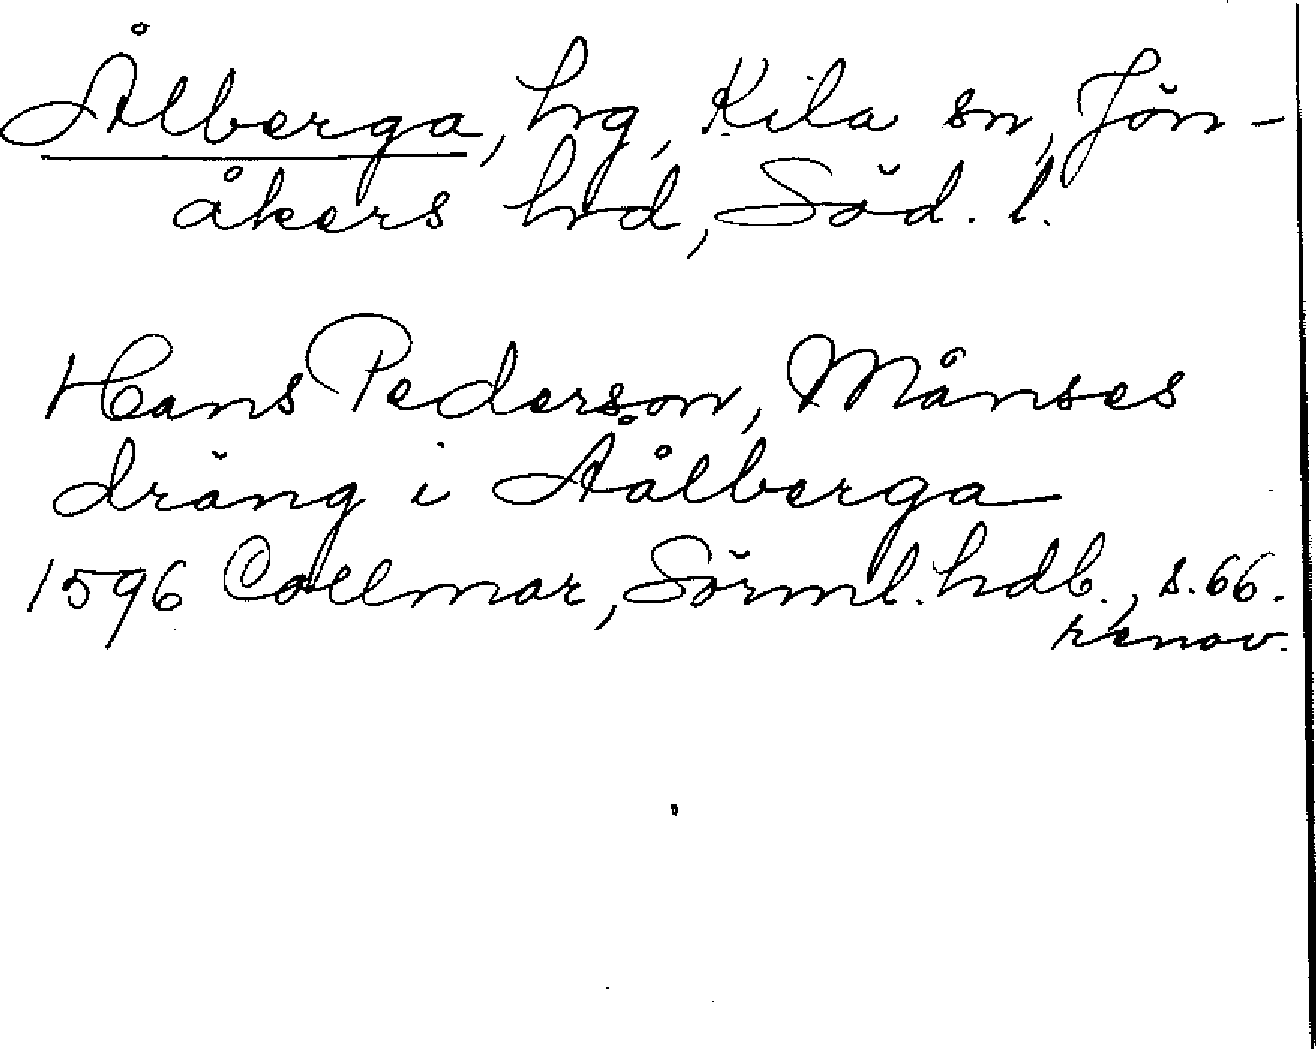 Ålberga, hg, Kila sn, Jön-
åkers hrd, Söd. l.
Hans Pederson, Månses
dräng i Åålberga
1596 Collmar, Sörml. hdl., s. 66.
renov.